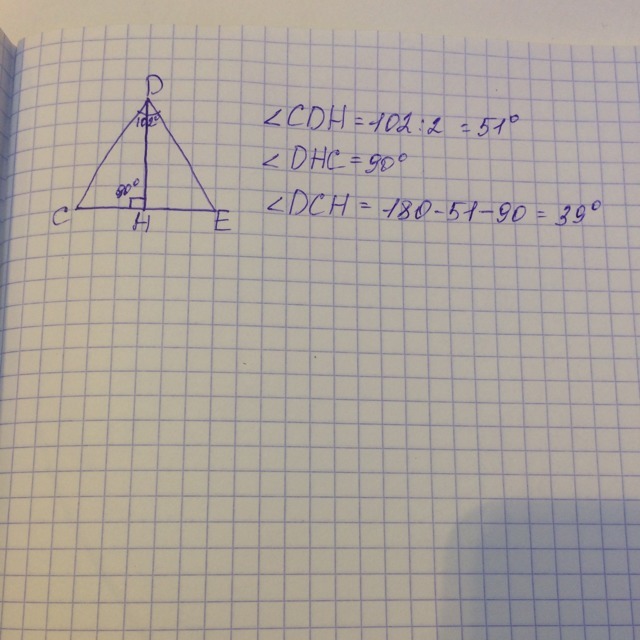 D
102°
90°
C
H
E
∠CDH = 102 : 2 = 51°
∠DHC = 90°
∠DCH = 180 - 51 - 90 = 39°